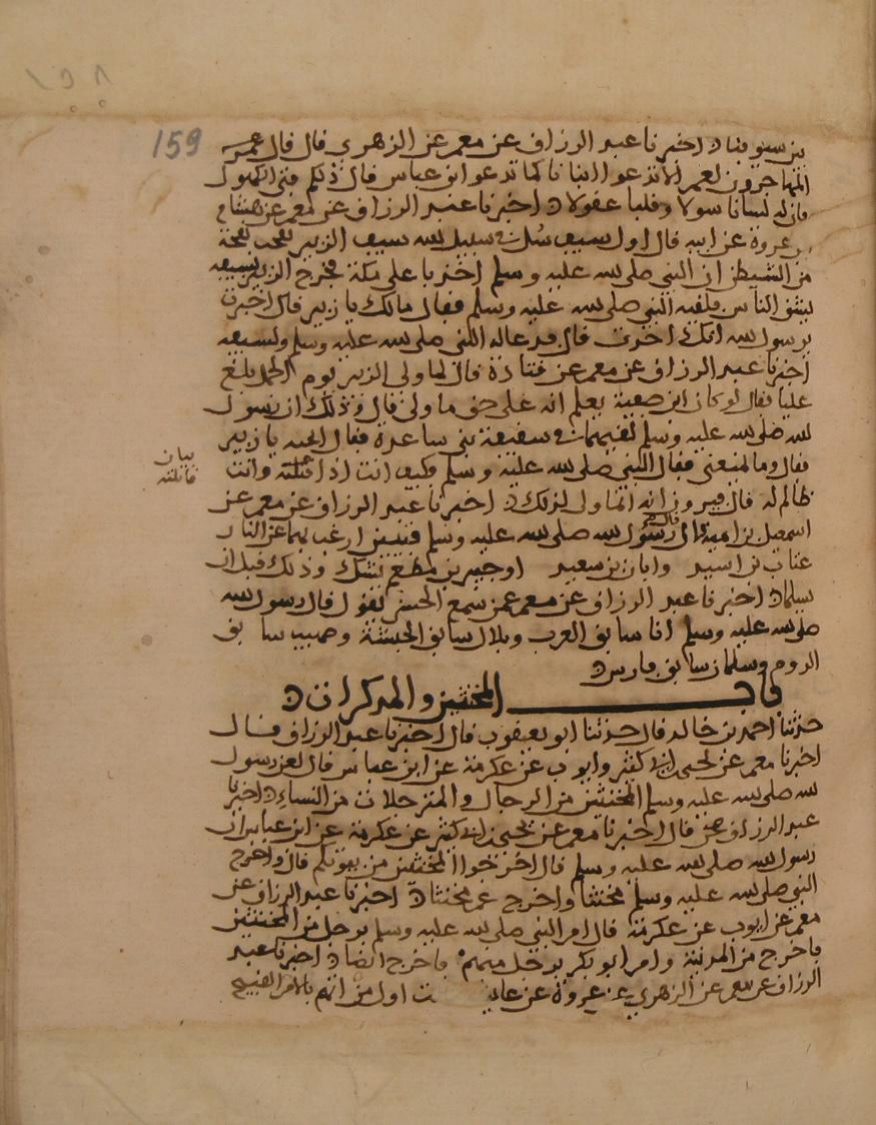 159
بن سنوفناد اخبرنا عبد الرزاق عن معمر عن الزهري قال قال عمر
المهاجرون لعمر الا تدعوا ابنانا كما تدعو ابن عباس قال ذلكم فتى الكهول
فان له لسانا سولا وقلبا عقولا اخبرنا عبد الرزاق عن معمر عن هشام
بن عروة عن ابيه قال اول سيف سل في سبيل الله سيف الزبير نفحت نفحة
من الشيطن ان النبي صلى الله عليه وسلم اخذ باعلى مكة فخرج الزبير بسيفه
يشق الناس فلقيه النبي صلى الله عليه وسلم فقال مالك يا زبير قال اخبرت
يرسول الله انك اخذت قال فدعا له النبي صلى الله عليه وسلم ولسيفه
اخبرنا عبد الرزاق عن معمر عن قتادة قال لما ولى الزبير يوم الجمل بلغ
عليا فقال لو كان ابن صفية يعلم انه على حق ما ولى قال وذلك ان رسول
الله صلى الله عليه وسلم لقيهما في سقيفة بني ساعدة فقال اتحبه يا زبير
فقال وما يمنعني فقال النبي صلى الله عليه وسلم فكيف انت اذا قتلته وانت
بيان قاتلته
ظالم له قال فيرون انه انما ولى لذلك اخبرنا عبد الرزاق عن معمر عن
اسمعيل بن امية قال قال رسول الله صلى الله عليه وسلم فتيين ارغب بهما عن النار
عتاب بن اسيد وابان بن سعيد او جبير بن مطعم نشك وذلك قبل ان
يسلما اخبرنا عبد الرزاق عن معمر عمن سمع الحسن يقول قال رسول الله
صلى الله عليه وسلم انا سابق العرب وبلال سابق الحبشة وصهيب سابق
الروم وسلمان سابق فارس
باب المخنثين والمذكرات
حدثنا احمد بن خالد قال حدثنا ابو يعقوب قال اخبرنا عبد الرزاق قال
اخبرنا معمر عن يحيى بن ابي كثير وايوب عن عكرمة عن ابن عباس قال لعن رسول
الله صلى الله عليه وسلم المخنثين من الرجال والمترجلات من النساء اخبرنا
عبد الرزاق قال اخبرنا معمر عن يحيى بن ابي كثير عن عكرمة عن ابن عباس ان
رسول الله صلى الله عليه وسلم قال اخرجوا المخنثين من بيوتكم قال واخرج
النبي صلى الله عليه وسلم مخنثا واخرج عمر مخنثا اخبرنا عبد الرزاق عن
معمر عن ايوب عن عكرمة قال امر النبي صلى الله عليه وسلم برجل من المخنثين
فاخرج من المدينة وامر ابو بكر برجل منهم فاخرج ايضا اخبرنا عبد
الرزاق عن معمر عن الزهري عن عروة عن اول من اتهم بالامر القبيح